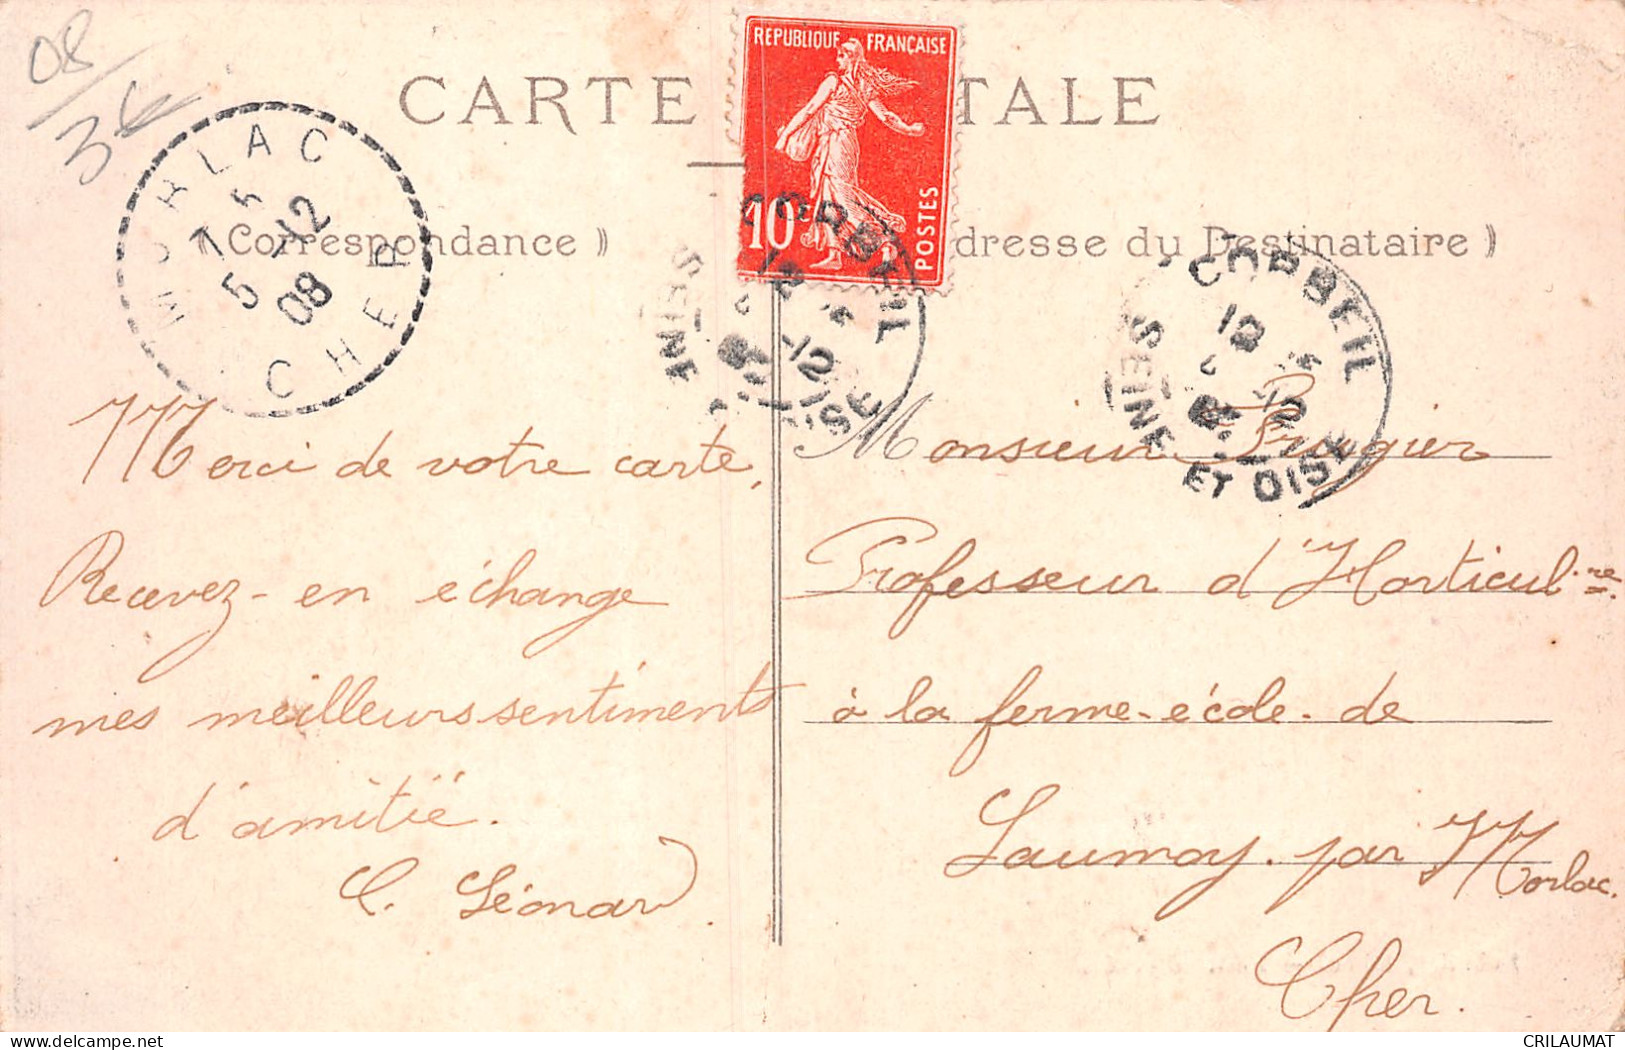 08/36
CARTE TALE
REPUBLIQUE FRANÇAISE
10c
POSTES
MORLAC
7 5
5 -12
08
CHER
( Correspondance )
dresse du Destinataire )
CORBEIL
12
12
SEINE OISE
CORBEIL
12
12
SEINE ET OISE
Merci de votre carte,
Recevez-en échange
mes meilleurs sentiments
d'amitié.
C. Léonard
Monsieur Brugier
Professeur d'Horticulre
à la ferme-école de
Laumoy par Morlac.
Cher.
CRILAUMAT